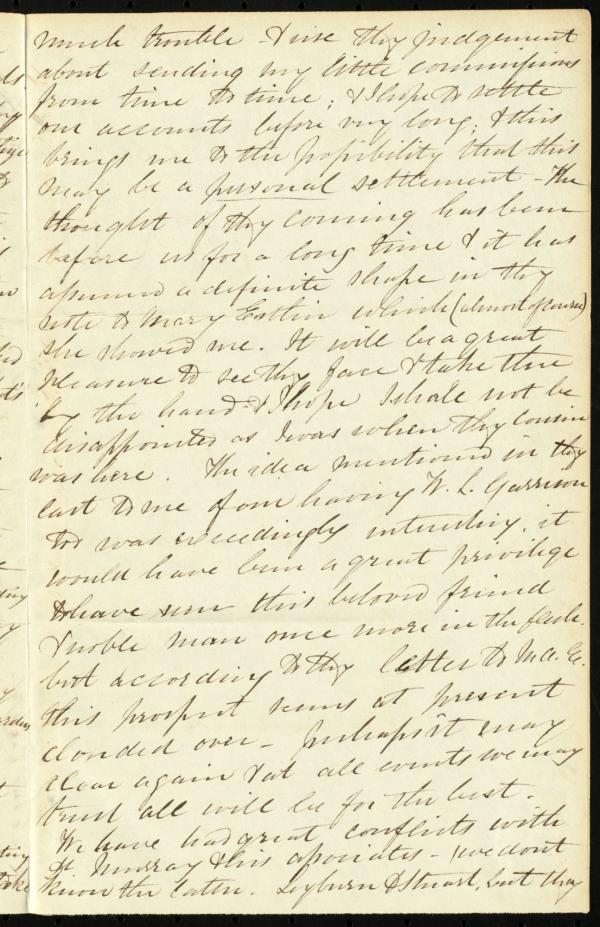 much trouble & use thy judgement
about sending my little commissions
from time to time; & I hope to settle
our accounts before very long; & this
brings me to the possibility that this
may be a personal settlement - The
thought of thy coming has been
before us for a long time & it has
assumed a definite shape in thy
note to Mary Estlin which (almost of course)
she showed me. It will be a great
pleasure to see thy face & take thee
by the hand & I hope I shall not be
disappointed as I was when thy cousin
was here. The idea mentioned in thy
last to me of our having W. L. Garrison
too was exceedingly interesting. it
would have been a great privilege
to have seen this beloved friend
& noble man once more in the flesh.
but according to thy letter to M.A. E.
this prospect seems at present
clouded over - perhaps it may
clear again & at all events we may
trust all will be for the best.
We have had great conflicts with
Dr Murray & his associates - (we dont
know the latter. Leyburn & Stuart, but they